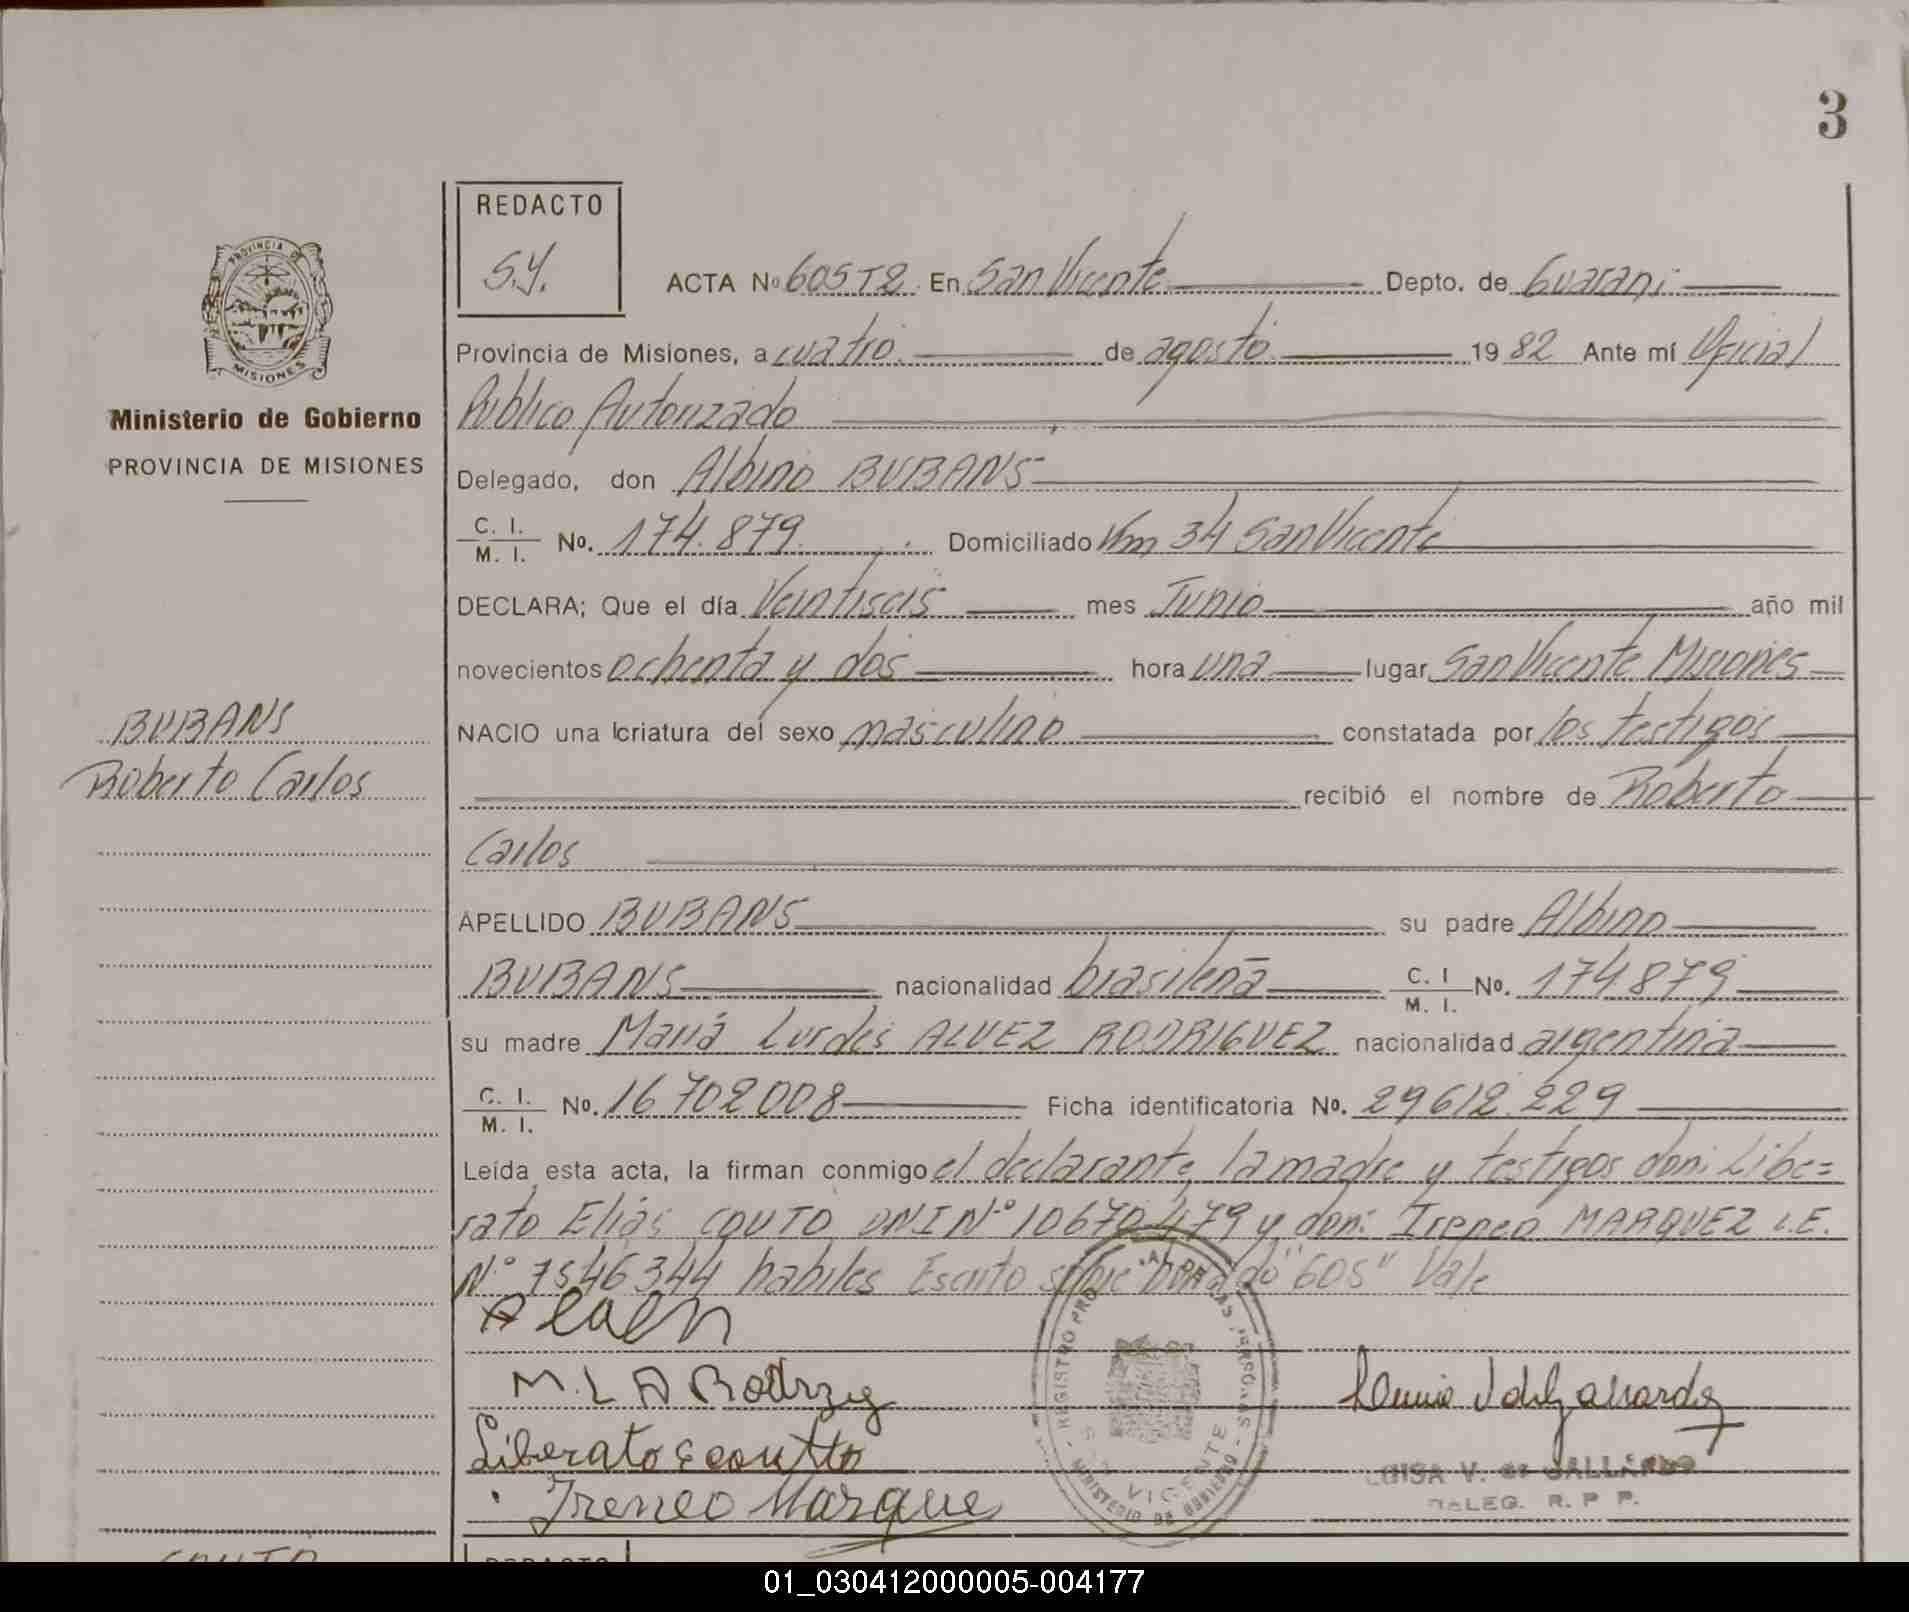 3
REDACTO
S.Y.
ACTA Nº 605T2 En San Vicente Depto. de Guaraní
Provincia de Misiones, a cuatro de agosto 1982 Ante mí Oficial
Público Autorizado
Delegado, don Albino BUBANS
C. I.
M. I. No. 174.879 Domiciliado Km 34 San Vicente
DECLARA; Que el día Veintiseis mes Junio año mil
novecientos ochenta y dos hora una lugar San Vicente Misiones
NACIO una criatura del sexo masculino constatada por los testigos
recibió el nombre de Roberto
Carlos
APELLIDO BUBANS su padre Albino
BUBANS nacionalidad brasileña C. I M. I. No. 174879
su madre María Lurdes ALVEZ RODRIGUEZ nacionalidad argentina
C. I.
M. I. No. 16702008 Ficha identificatoria No. 29612.229
Leída esta acta, la firman conmigo el declarante, la madre y testigos don: Libe=
rato Eliás COUTO DNI Nº 10670479 y don: Ireneo MARQUEZ L.E.
Nº 7546344 habiles Escrito sobre borrado "605" Vale
M. L A Rodrzg
Liberato E coutto
Ireneo Marque
REGISTRO PRO AL DE LAS PERSONAS
VICENTE
MINISTERIO DE GOBIERNO
LUISA V. de GALLARDO
DELEG. R. P P.
PROVINCIA DE
MISIONES
Ministerio de Gobierno
PROVINCIA DE MISIONES
BUBANS
Roberto Carlos
COUTO
REDACTO
01_030412000005-004177